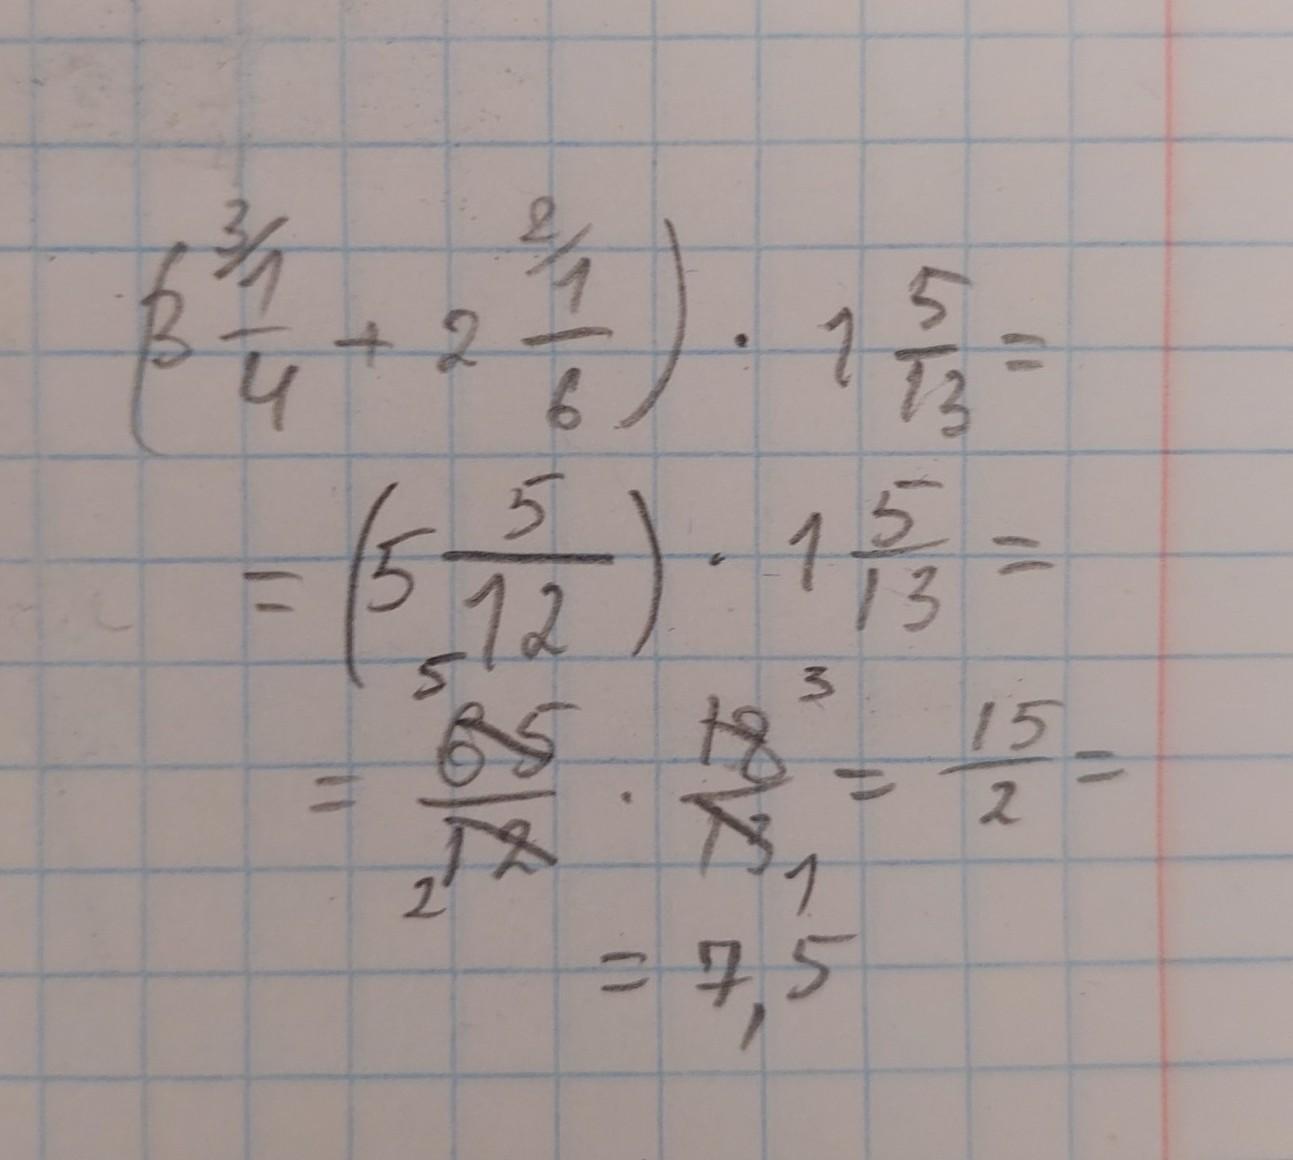 (3 3/1/4 + 2 2/1/6) · 1 5/13 =
= (5 5/12) · 1 5/13 =
= 5 65/12 2 · 18 3/13 1 = 15/2 =
= 7,5